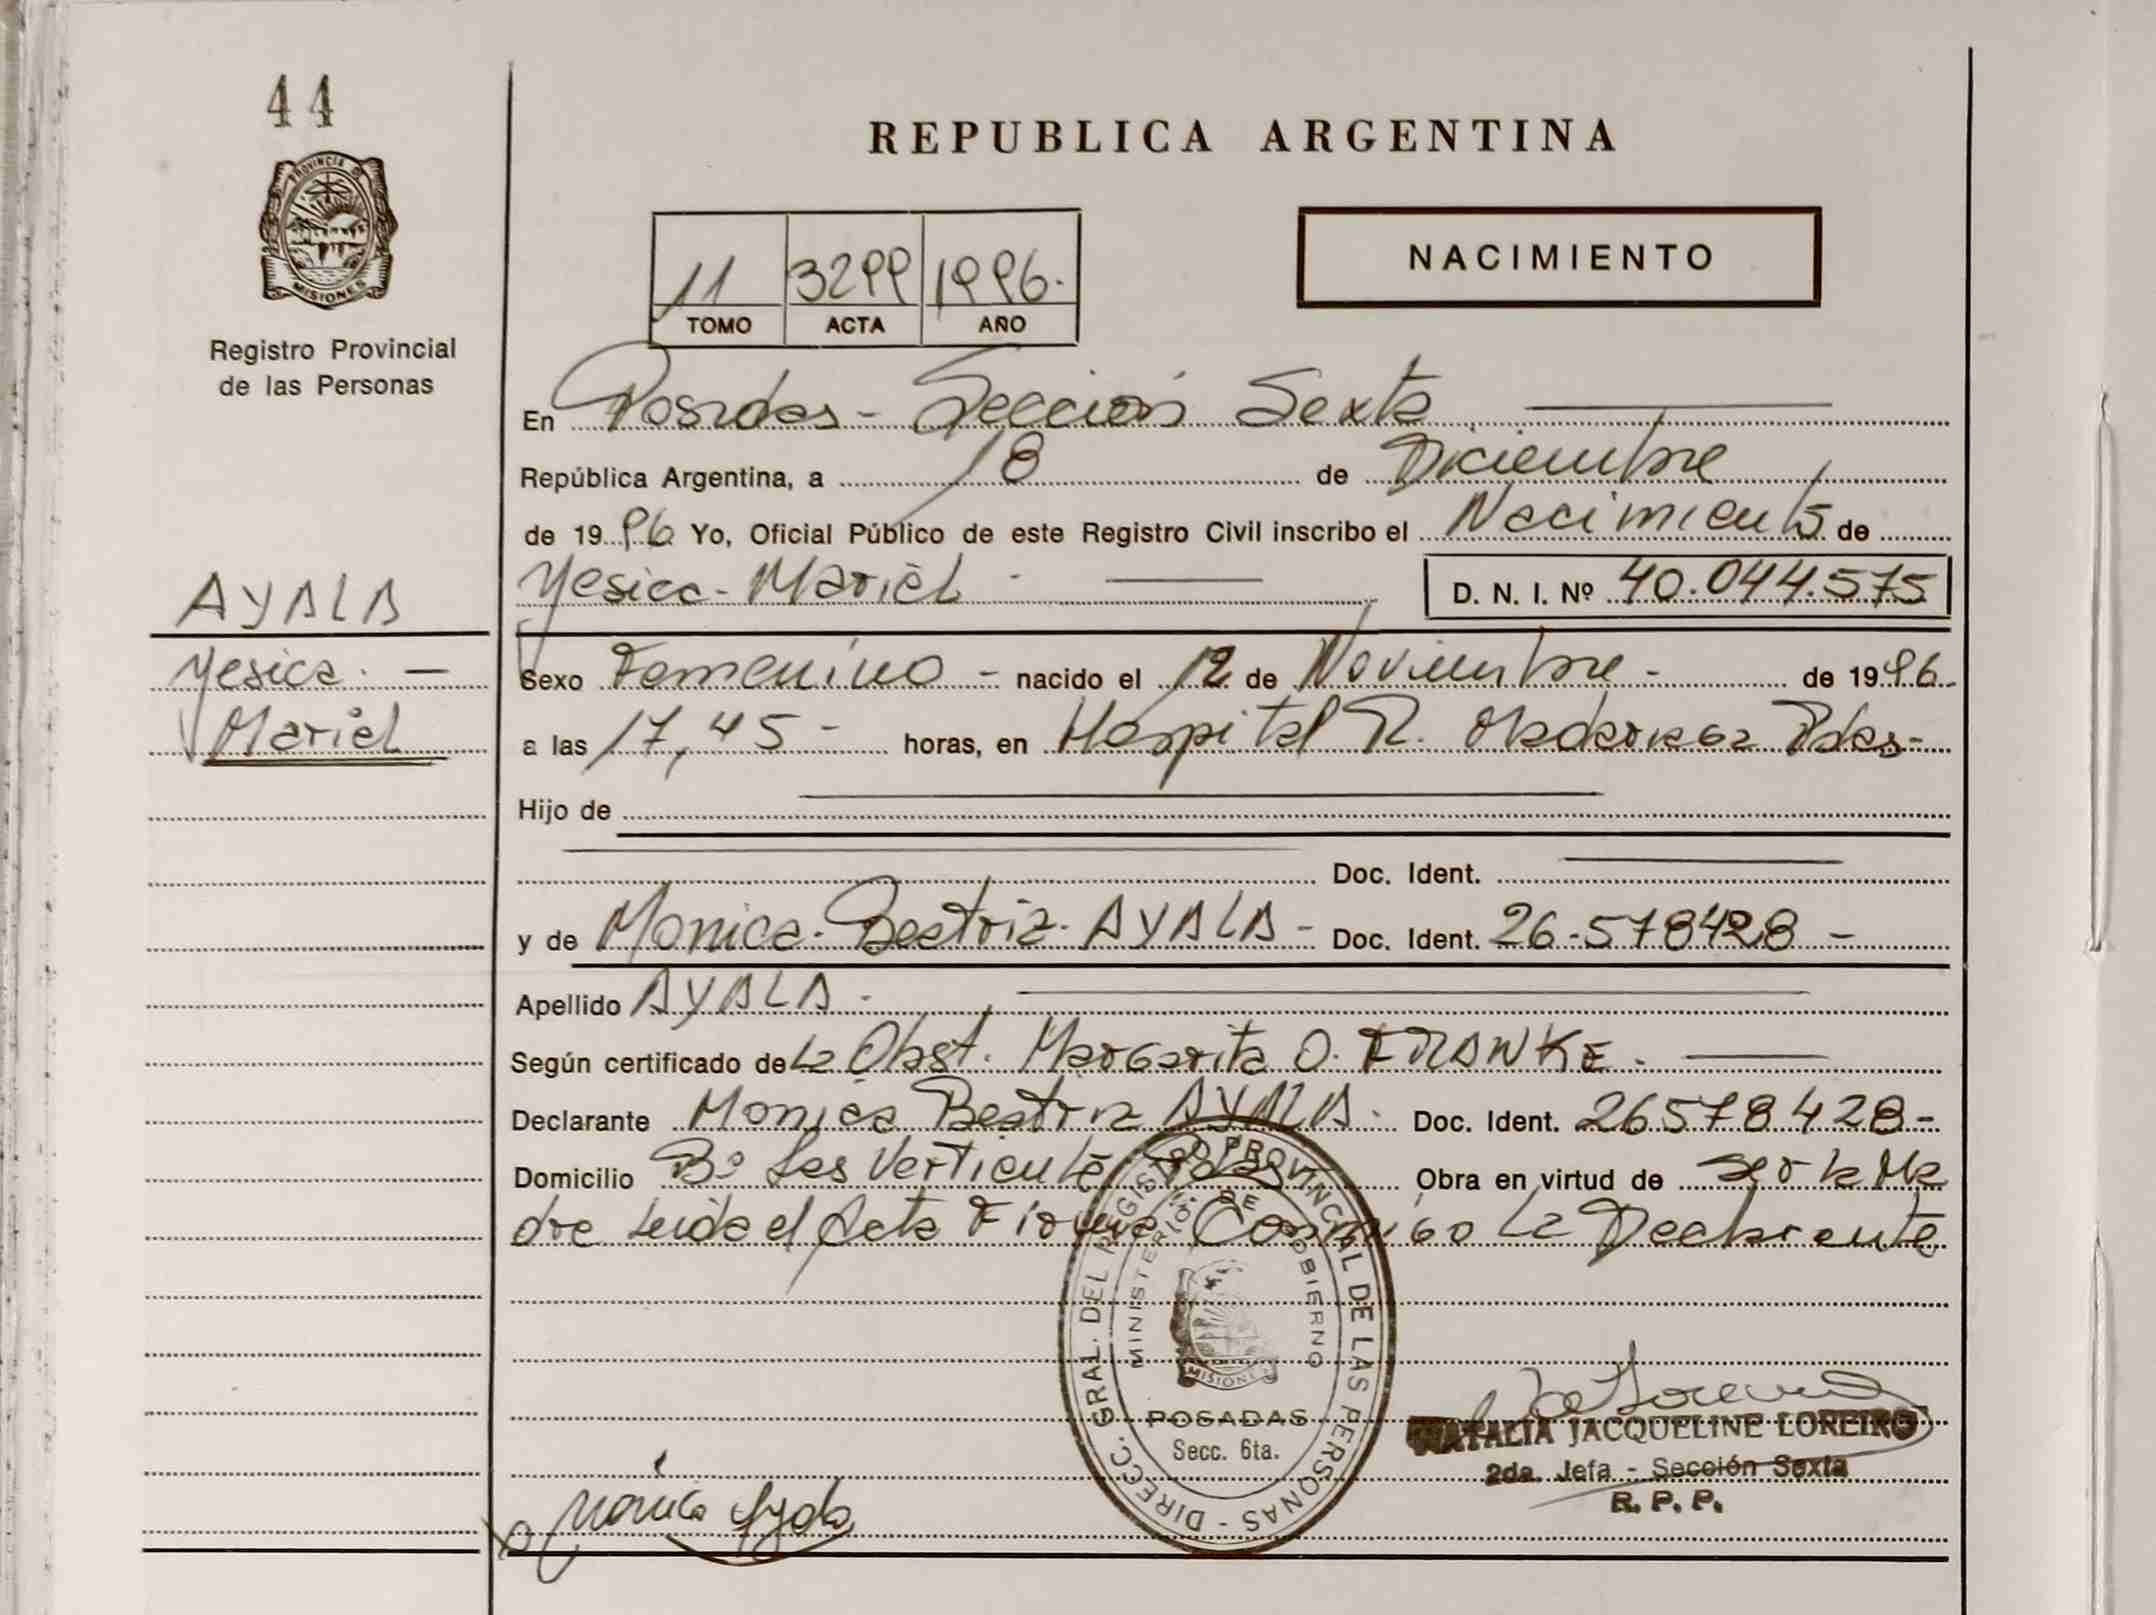 44
PROVINCIA DE
MISIONES
Registro Provincial
de las Personas
REPUBLICA ARGENTINA
NACIMIENTO
11 3299 1996.
TOMO ACTA AÑO
En Posadas - Sección Sexta
República Argentina, a 18 de Diciembre
de 1996 Yo, Oficial Público de este Registro Civil inscribo el Nacimiento de
Yesica - Mariel - D. N. I. Nº 40.044.575
AYALA
Yesica. -
Mariel
Sexo Femenino - nacido el 12 de Noviembre - de 1996.
a las 17,45 - horas, en Hospital R. Madariaga Pdas-
Hijo de
Doc. Ident.
y de Monica - Beatriz - AYALA - Doc. Ident. 26.578428 -
Apellido AYALA -
Según certificado de La Obst. Margarita O. FRANKE -
Declarante Monica Beatriz AYALA - Doc. Ident. 26578428 -
Domicilio Bº Las Vertiente Pdas Obra en virtud de ser la Ma
dre Leida el Acta Firma Conmigo La Declarante
DIRECC. GRAL. DEL REGISTRO PROVINCIAL DE LAS PERSONAS -
MINISTERIO DE GOBIERNO
MISIONES
POSADAS
Secc. 6ta.
NATALIA JACQUELINE LOREIRO
2da. Jefa - Sección Sexta
R. P. P.
Mónica Ayala